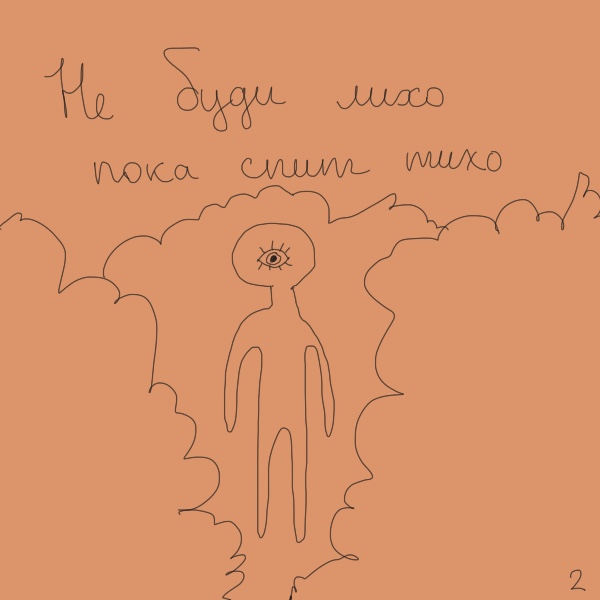 Не буди лихо
пока спит тихо
2